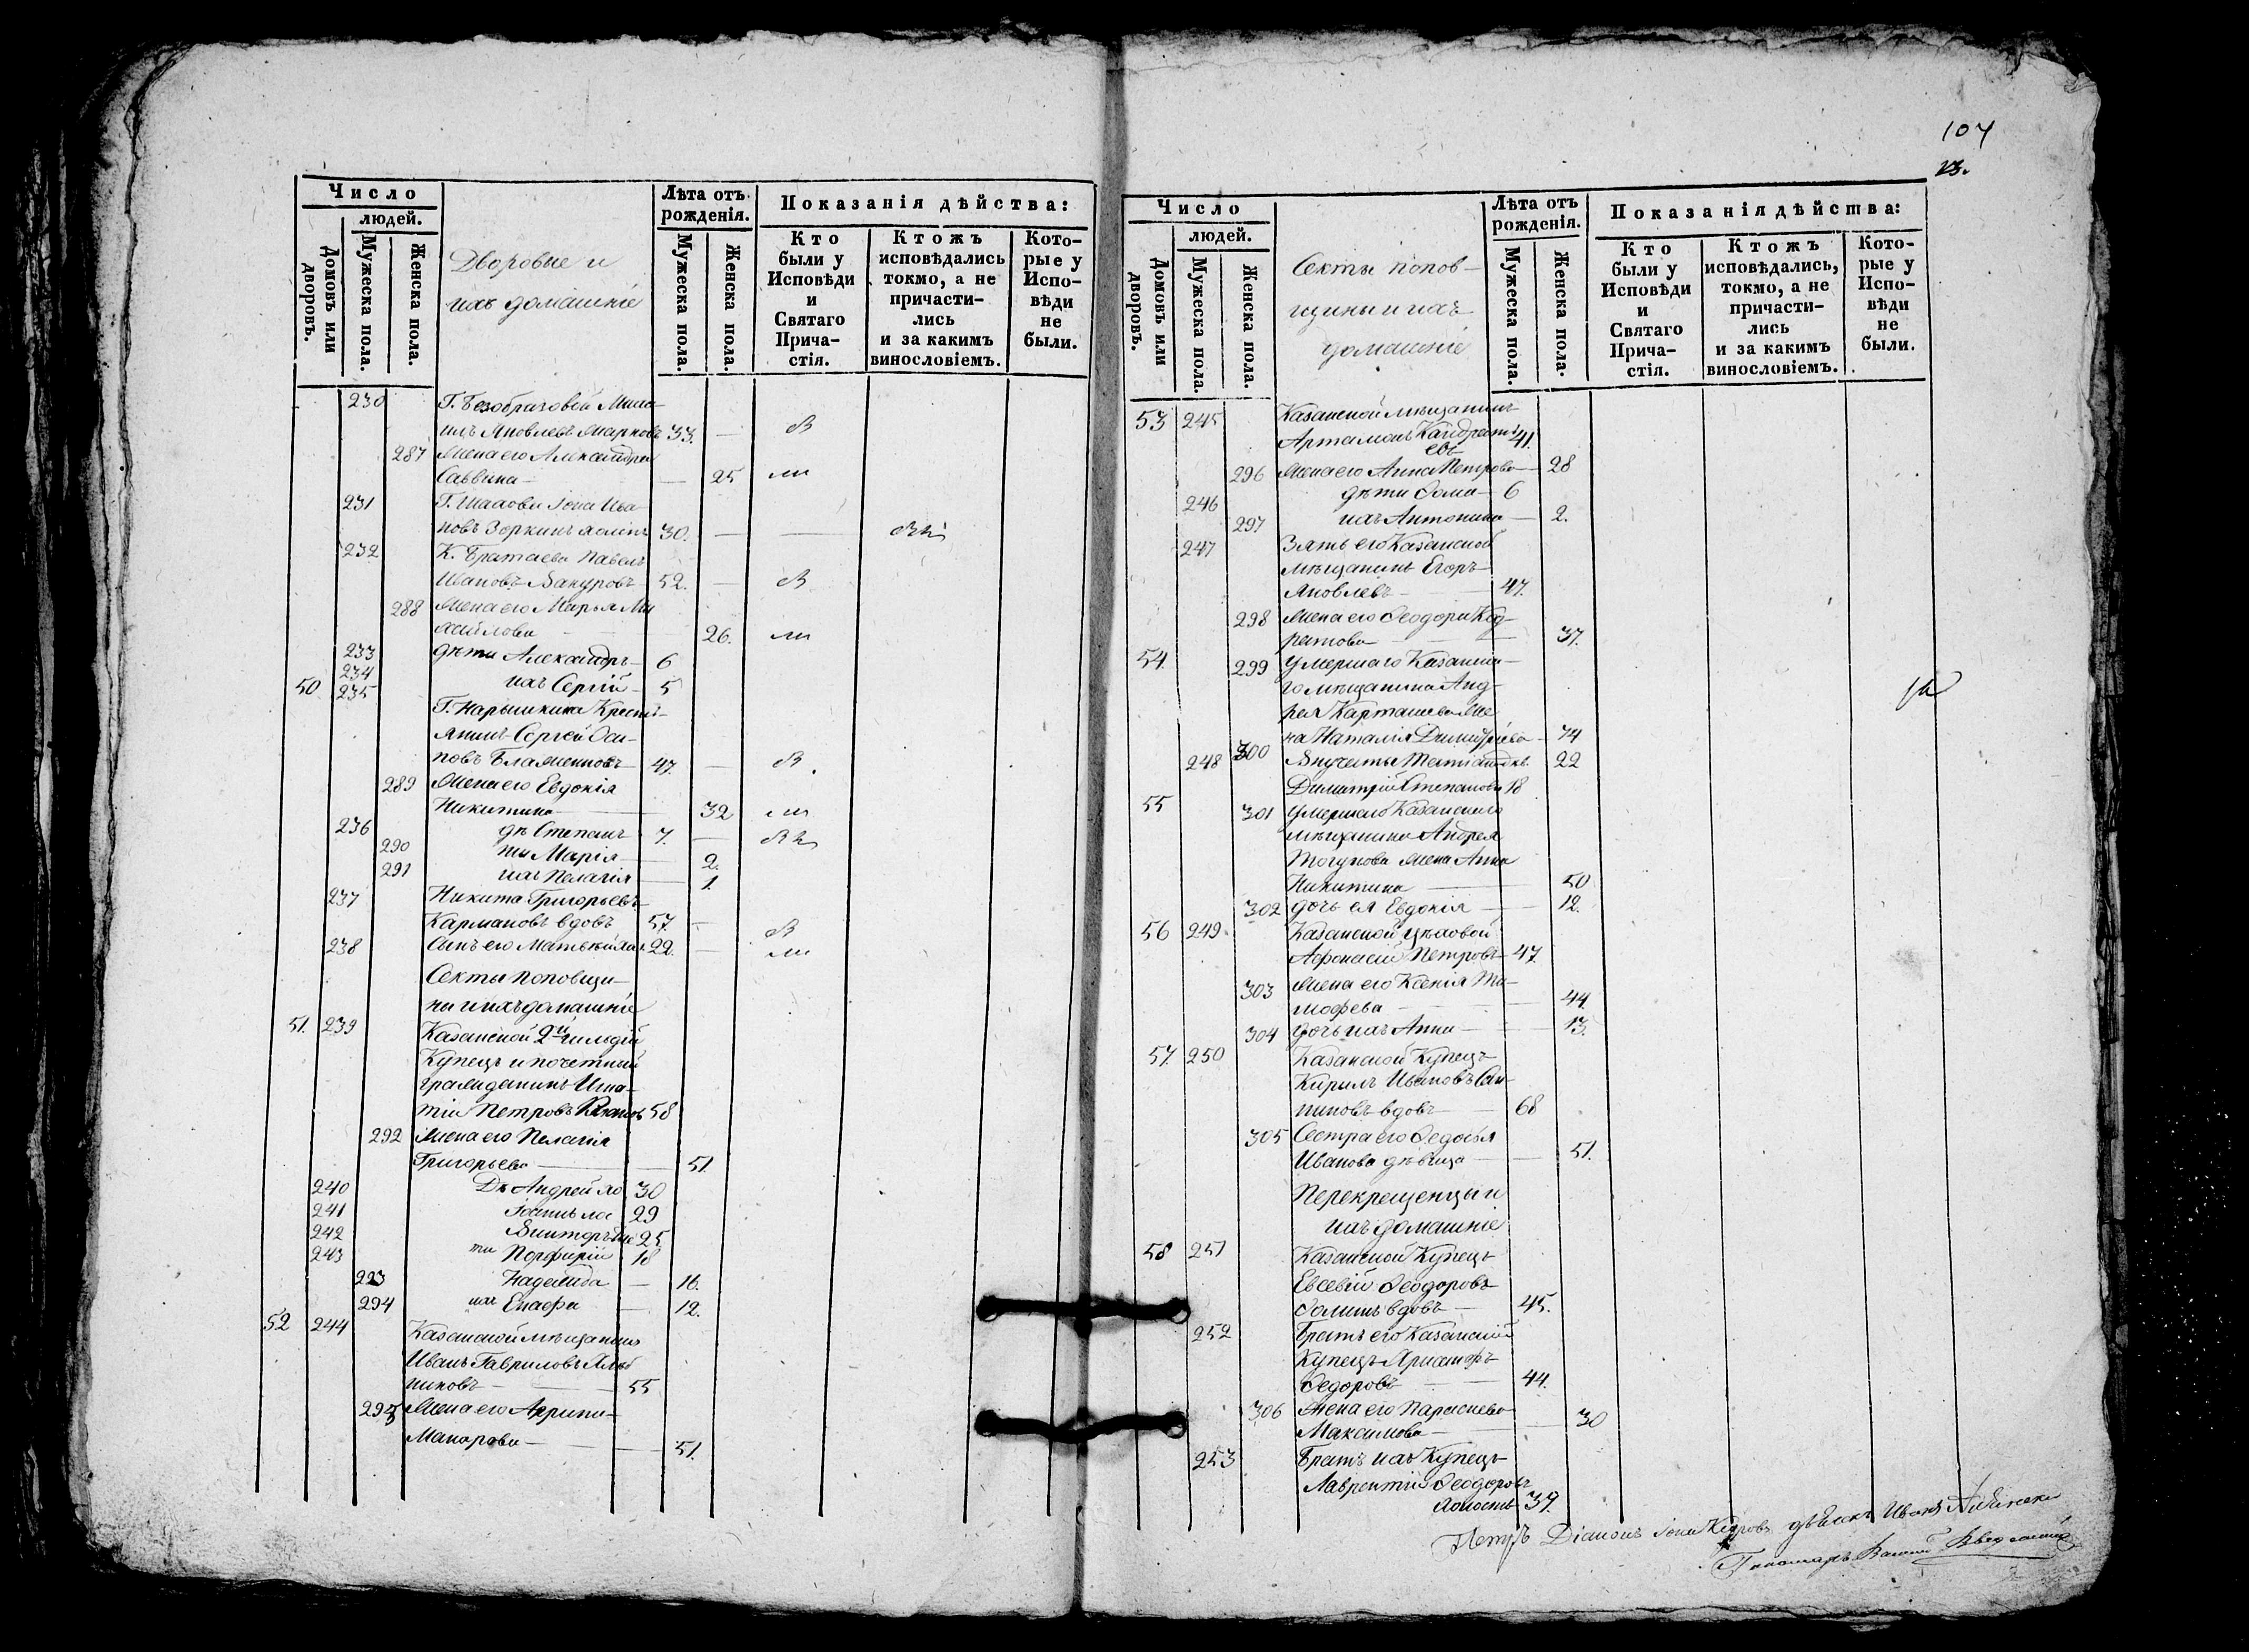 Число
людей.
Домовъ или дворовъ.
Мужеска пола.
Женска пола.
Дворовые и
ихъ домашніе
Лѣта отъ
рожденія.
Мужеска пола.
Женска пола.
Показанія дѣйства:
Кто
были у
Исповѣди
и
Святаго
Прича-
стія.
Ктожъ
исповѣдались
токмо, а не
причасти-
лись
и за какимъ
винословіемъ.
Кото-
рые у
Испо-
вѣди
не
были.
230 Г. Безобразовой Миха-
илъ Яковлевъ Марковъ 33. — В
287 Жена его Александра
Саввина — 25
231 Г. Шахови Іона Ива-
новъ Зоркинъ холостъ 30.
232 К. Братаева Павелъ
Ивановъ 52. — В
288 Жена его Марья Ми
хайлова 26.
233 дѣти Александръ — 6
234 ихъ Сергій — 5
50 235 Г. Нарышкина Кресть-
янинъ Сергей Оси-
повъ 47. — В
289 Жена его Евдокія
Никитина 32
236 дѣ Степанъ 7.
290 ти Марія 2.
291 ихъ Пелагія 1.
237 Никита Григорьевъ
Кармановъ вдовъ 57. — В
238 Сынъ его Матвѣй хол. 22.
Секты поповщи-
ны и ихъ домашніе
51. 239 Казанской 2й гильдіи
Купецъ и почетный
гражданинъ Игна-
тій Петровъ 58
292 Жена его Пелагія
Григорьева 51
240 Дѣ Андрей хо 30
241 29
242 Викторъ 25
243 ти Порфирій 18
293 Надежда — 16.
294 ихъ 12.
52 244 Казанской мѣщанинъ
Иванъ Гавриловъ
никовъ 55
295 Жена его Агрипи-
Макарова 51.
104
Число
людей.
Домовъ или дворовъ.
Мужеска пола.
Женска пола.
Секты попов-
щины и ихъ
домашніе
Лѣта отъ
рожденія.
Мужеска пола.
Женска пола.
Показанія дѣйства:
Кто
были у
Исповѣди
и
Святаго
Прича-
стія.
Ктожъ
исповѣдались,
токмо, а не
причасти-
лись
и за какимъ
винословіемъ.
Кото-
рые у
Испо-
вѣди
не
были.
53 245 Казанской мѣщанинъ
Артамонъ Кандрать 41.
евъ
296 Жена его Анна Петрова 28
246 дѣти Ѳома 6
297 ихъ Антонина 2.
247 Зять его Казанской
мѣщанинъ Егоръ
Яковлевъ 47.
298 Жена его Ѳеодора Код-
ратова 37.
54. 299 Умершаго Казанска-
го мѣщанина Анд-
рея Карташева же
на Наталія Димитріева 74
248 300 Внучаты Татіана дѣв. 22
Димитрій Степановы 18
55 301 Умершаго Казанскаго
мѣщанина Андрея
жена Анна
Никитина 50
302 дочь ея Евдокія 12.
56 249 Казанской цѣховой
Афонасій Петровъ 47.
303 Жена его Ксенія Ти-
мофева 44.
304 дочь ихъ Анна 13.
57. 250 Казанской Купецъ
Кирилъ Ивановъ
вдовъ 68
305 Сестра его Ѳедосья
Иванова дѣвица 51.
Перекрещенцы и
ихъ домашніе
58 251 Казанской Купецъ
Евсевій Ѳеодоровъ
Ѳоминъ вдовъ 45.
252 Братъ его Казанскій
Купецъ
Ѳедоровъ 44.
306 Жена его Парасковья
Максимова 30
253 Братъ ихъ Купецъ
Лаврентій Ѳеодоровъ
холостъ 39.
Діаконъ Іона Иванъ
Пономарь